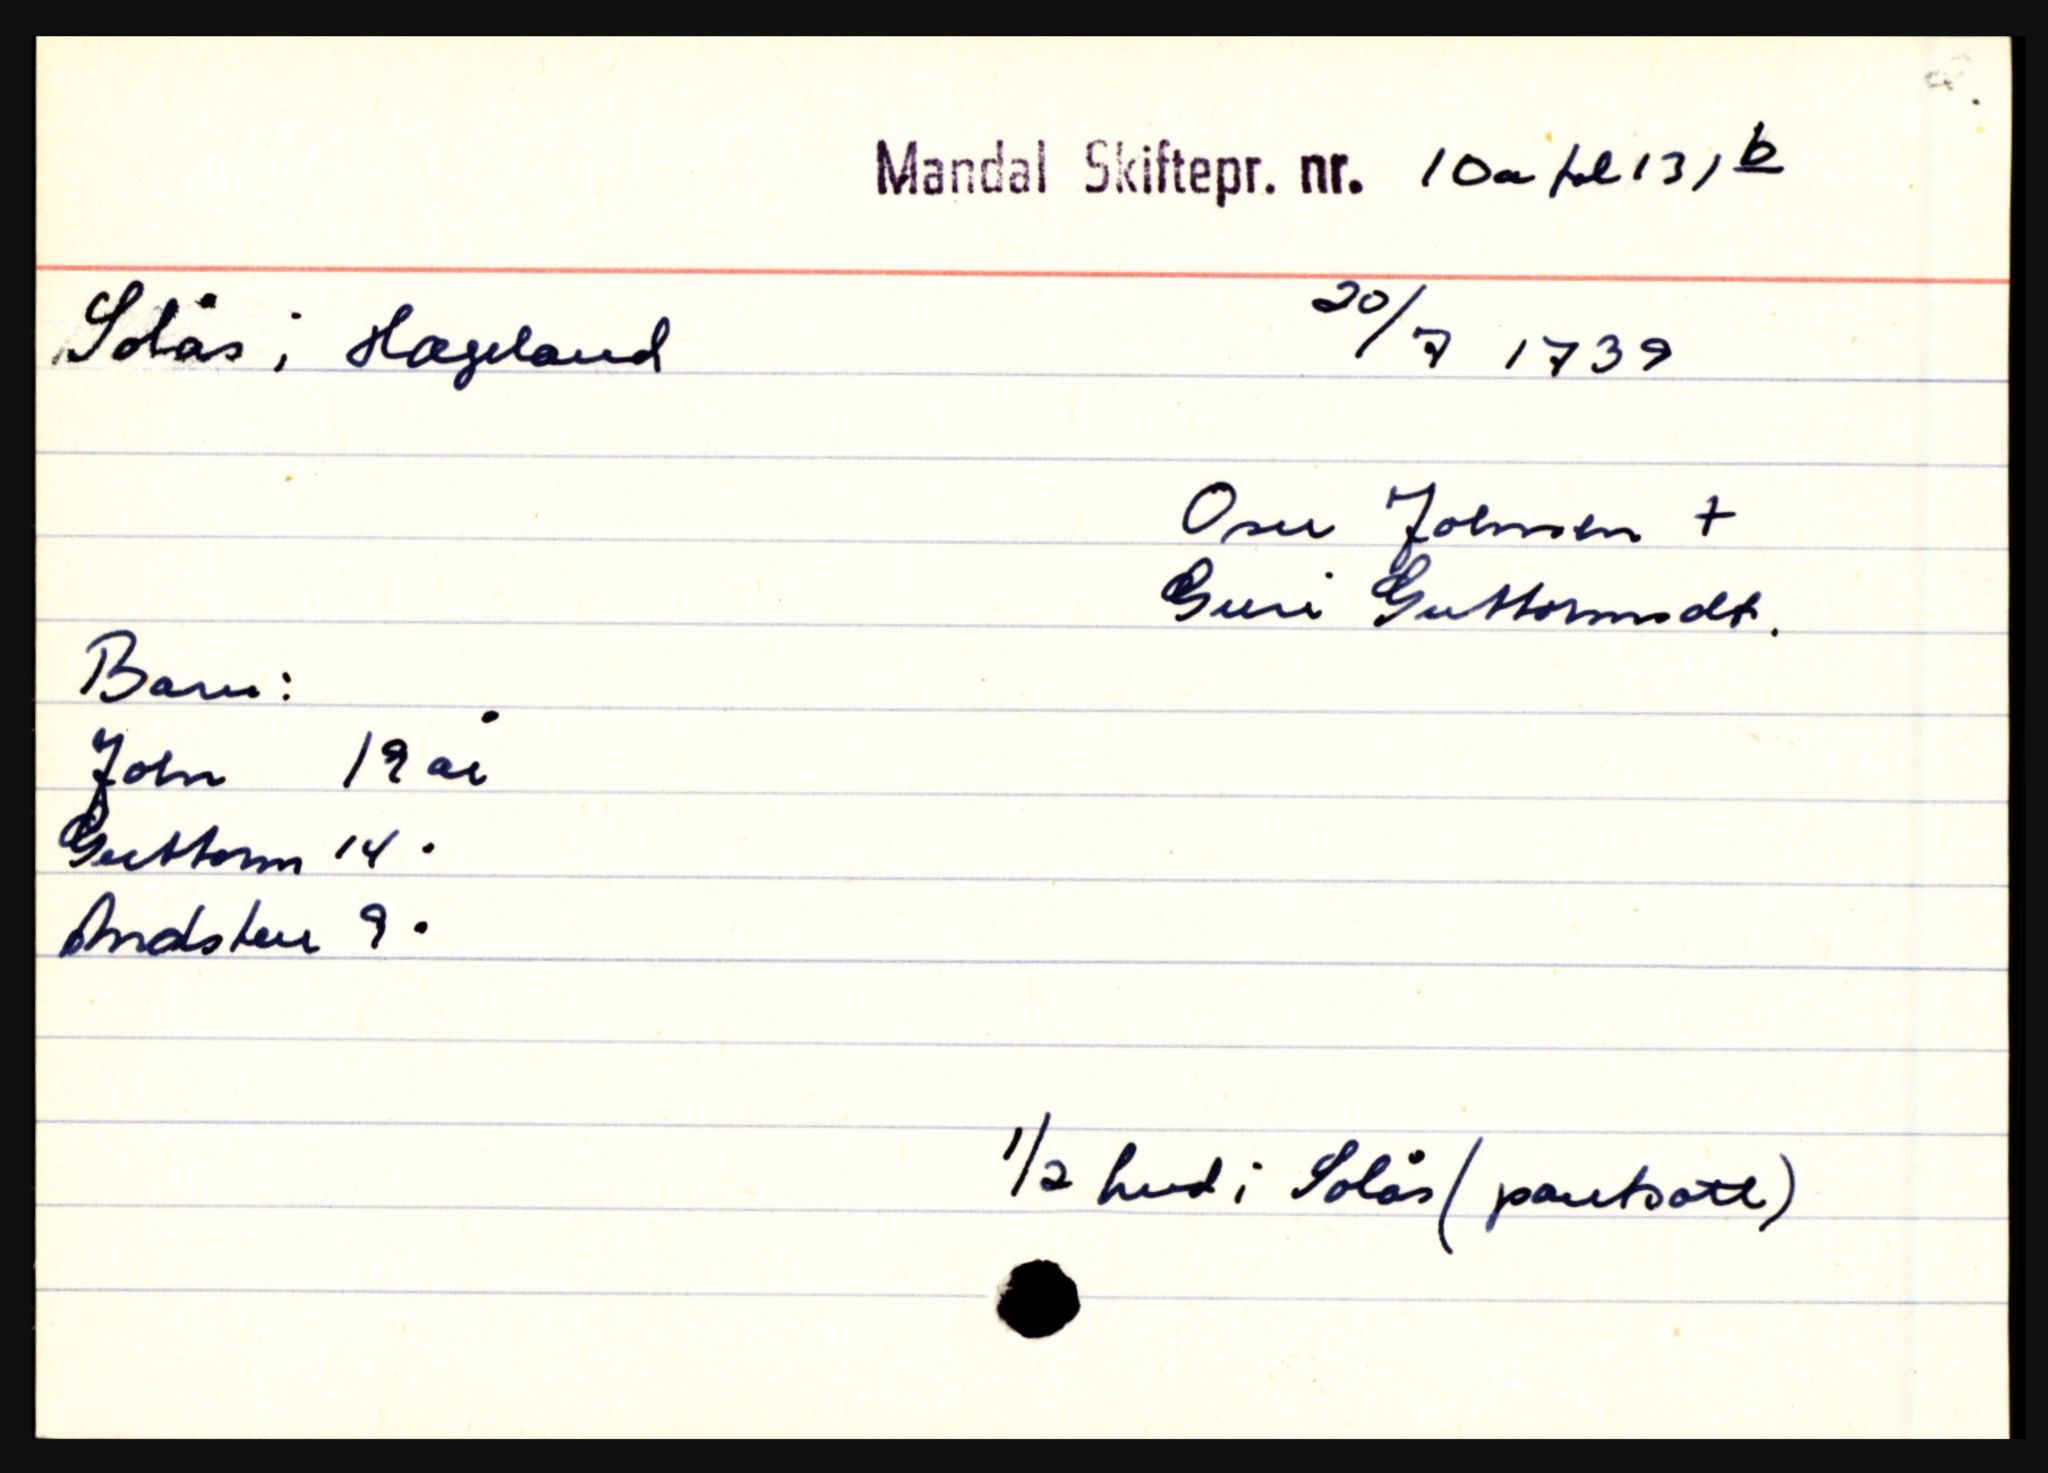 Mandal Skiftepr. nr. 10a fol 131 b
Solås i Hægeland 20/7 1739
Osen Johnsen +
Guri Guttormsdt.
Barn:
John 19 år
Guttorm 14 "
Andsten 9 "
1/2 hud i Solås (pantsatt)